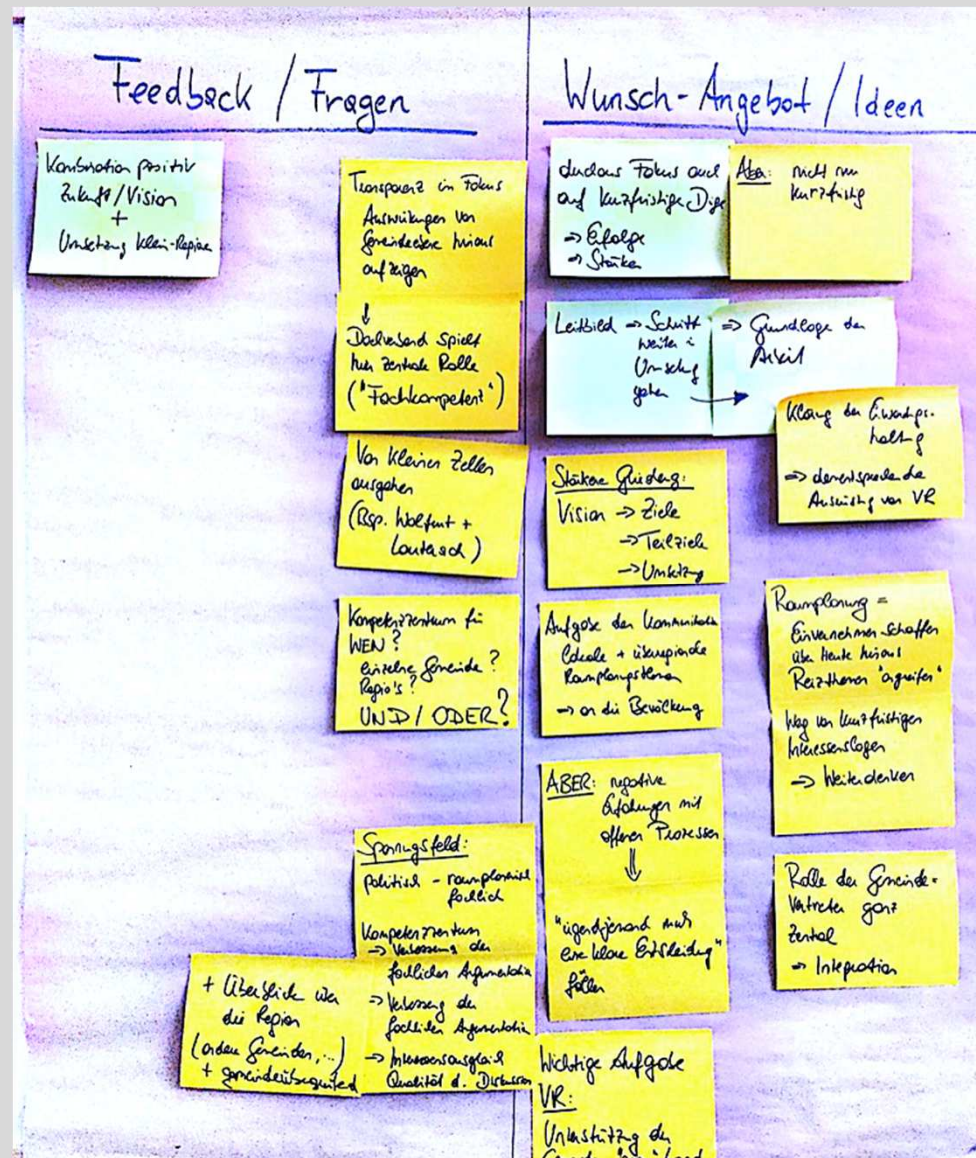 Feedback / Fragen
Kombination positiv
Zukunft/Vision
+
Umsetzung Klein-Region
Transparenz in Fokus
Auswirkungen von
Gemeindeebene hinaus
aufzeigen
↓
Dachverband spielt
hier zentrale Rolle
("Fachkompetenz")
Von kleinen Zellen
ausgehen
(Bsp. Wolfurt +
Lauterach)
Kompetenzzentrum für
WEN?
einzelne Gemeinde?
Regio's?
UND / ODER?
Spannungsfeld:
politisch - raumplanerisch
fachlich
Kompetenzzentrum
→ der
fachlichen Argumentation
→ der
fachlichen Argumentation
→ Interessensausgleich
Qualität d. Diskussion
+ Überblick über
die Region
(andere Gemeinden, ...)
+ gemeindeübergreifend
Wunsch-Angebot / Ideen
durchaus Fokus auch
auf kurzfristige Dinge
⇒ Erfolge
⇒ Stärken
Aber: nicht nur
kurzfristig
Leitbild ⇒ Schritt
weiter i
Umsetzung
gehen →
⇒ Grundlage der
Arbeit
Klärung der Erwartungs-
haltung
⇒ dementsprechende
Ausrichtung von VR
Stärkere Gliederung:
Vision → Ziele
→ Teilziele
→ Umsetzung
Aufgabe der Kommunikation
lokale + überregionale
Raumplanungsthemen
→ an die Bevölkerung
Raumplanung =
Einvernehmen schaffen
über heute hinaus
Reizthemen "angreifen"
Weg von kurzfristigen
Interessenslagen
⇒ Weiterdenken
ABER: negative
Erfahrungen mit
offenen Prozessen
⇓
"irgendjemand muss
eine klare Entscheidung"
fällen
Rolle der Gemeinde-
vertreter ganz
zentral
⇒ Integration
Wichtige Aufgabe
VR:
Unterstützung der